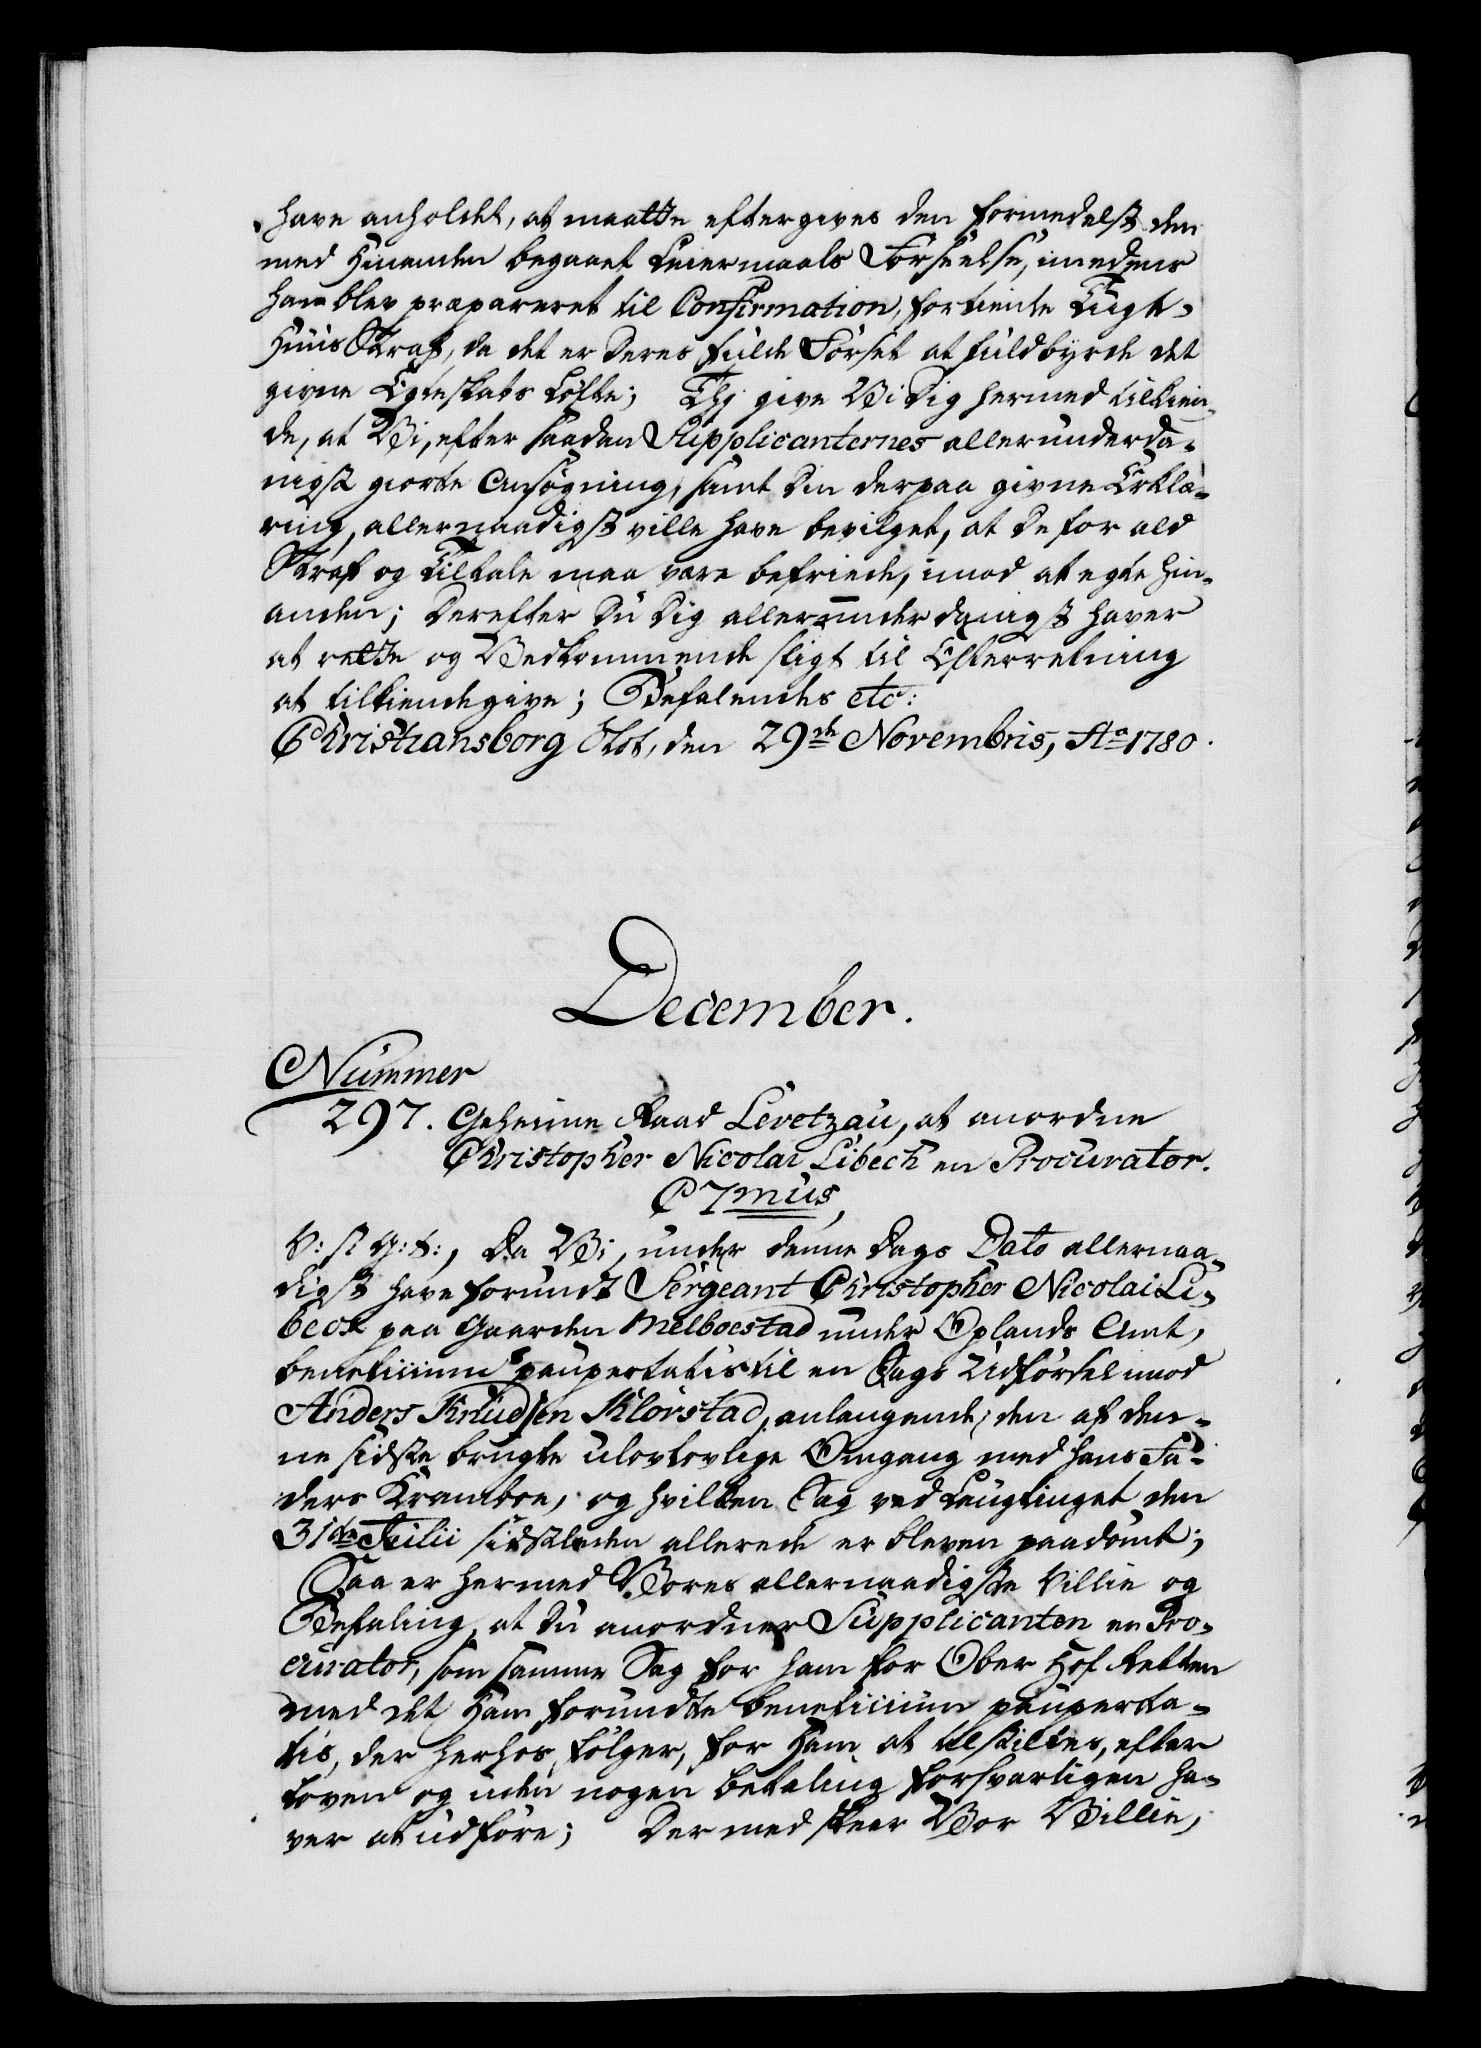 have anholdet, at maatte eftergives den formedelst den
med Hinanden begaaet Leiermaals Forseelse, imedens
han blev præpareret til Confirmation, fortiente Tugt-
Huus Straf, da det er Deres fulde Forsæt at fuldbyrde det
givne Egteskabs Løfte; Thj give Vi Dig hermed tilkien-
de, at Vi, efter saadan Supplicanternes allerunderda-
nigst giorte Ansøgning, samt Din derpaa givne Erklæ-
ring, allernaadigst ville have bevilget, at De for ald
Straf og Tiltale maa være befriede, imod at egte hin-
anden; Derefter Du Dig allerunderdanigst haver
at rette og Vedkommende sligt til Efterretning
at tilkiendegive; Befalendes etc:
Christiansborg Slot, den 29de Novembris, Ao 1780.
December.
Nummer
297. Geheime Raad Levetzau, at anordne
Christopher Nicolai Libech en Procurator.
C 7mus,
V: s: G: t:, Da Vi, under denne Dags Dato allernaa-
digst have forundt Sergeant Christopher Nicolai Li-
beck paa Gaarden Melboestad under Oplands Amt,
beneficium paupertatis til en Sags Udførsel imod
Anders Knudsen Klørstad, anlangende, den af den-
ne sidste brugte ulovlovlige Omgang med hans Fa-
ders Kramboe, og hvilken Sag ved Laugtinget den
31de Julii sidstleden allerede er bleven paadømt;
Saa er hermed Vores allernaadigste Villie og
Befaling, at Du anordner Supplicanten en Pro-
curator, som samme Sag for ham for Ober Hof Retten
med det Ham forundte beneficium pauperta-
tis, der herhos følger, for Ham at tilstilles, efter
Loven og uden nogen betaling forsvarligen ha-
ver at udføre; Dermed skeer Vor Villie,